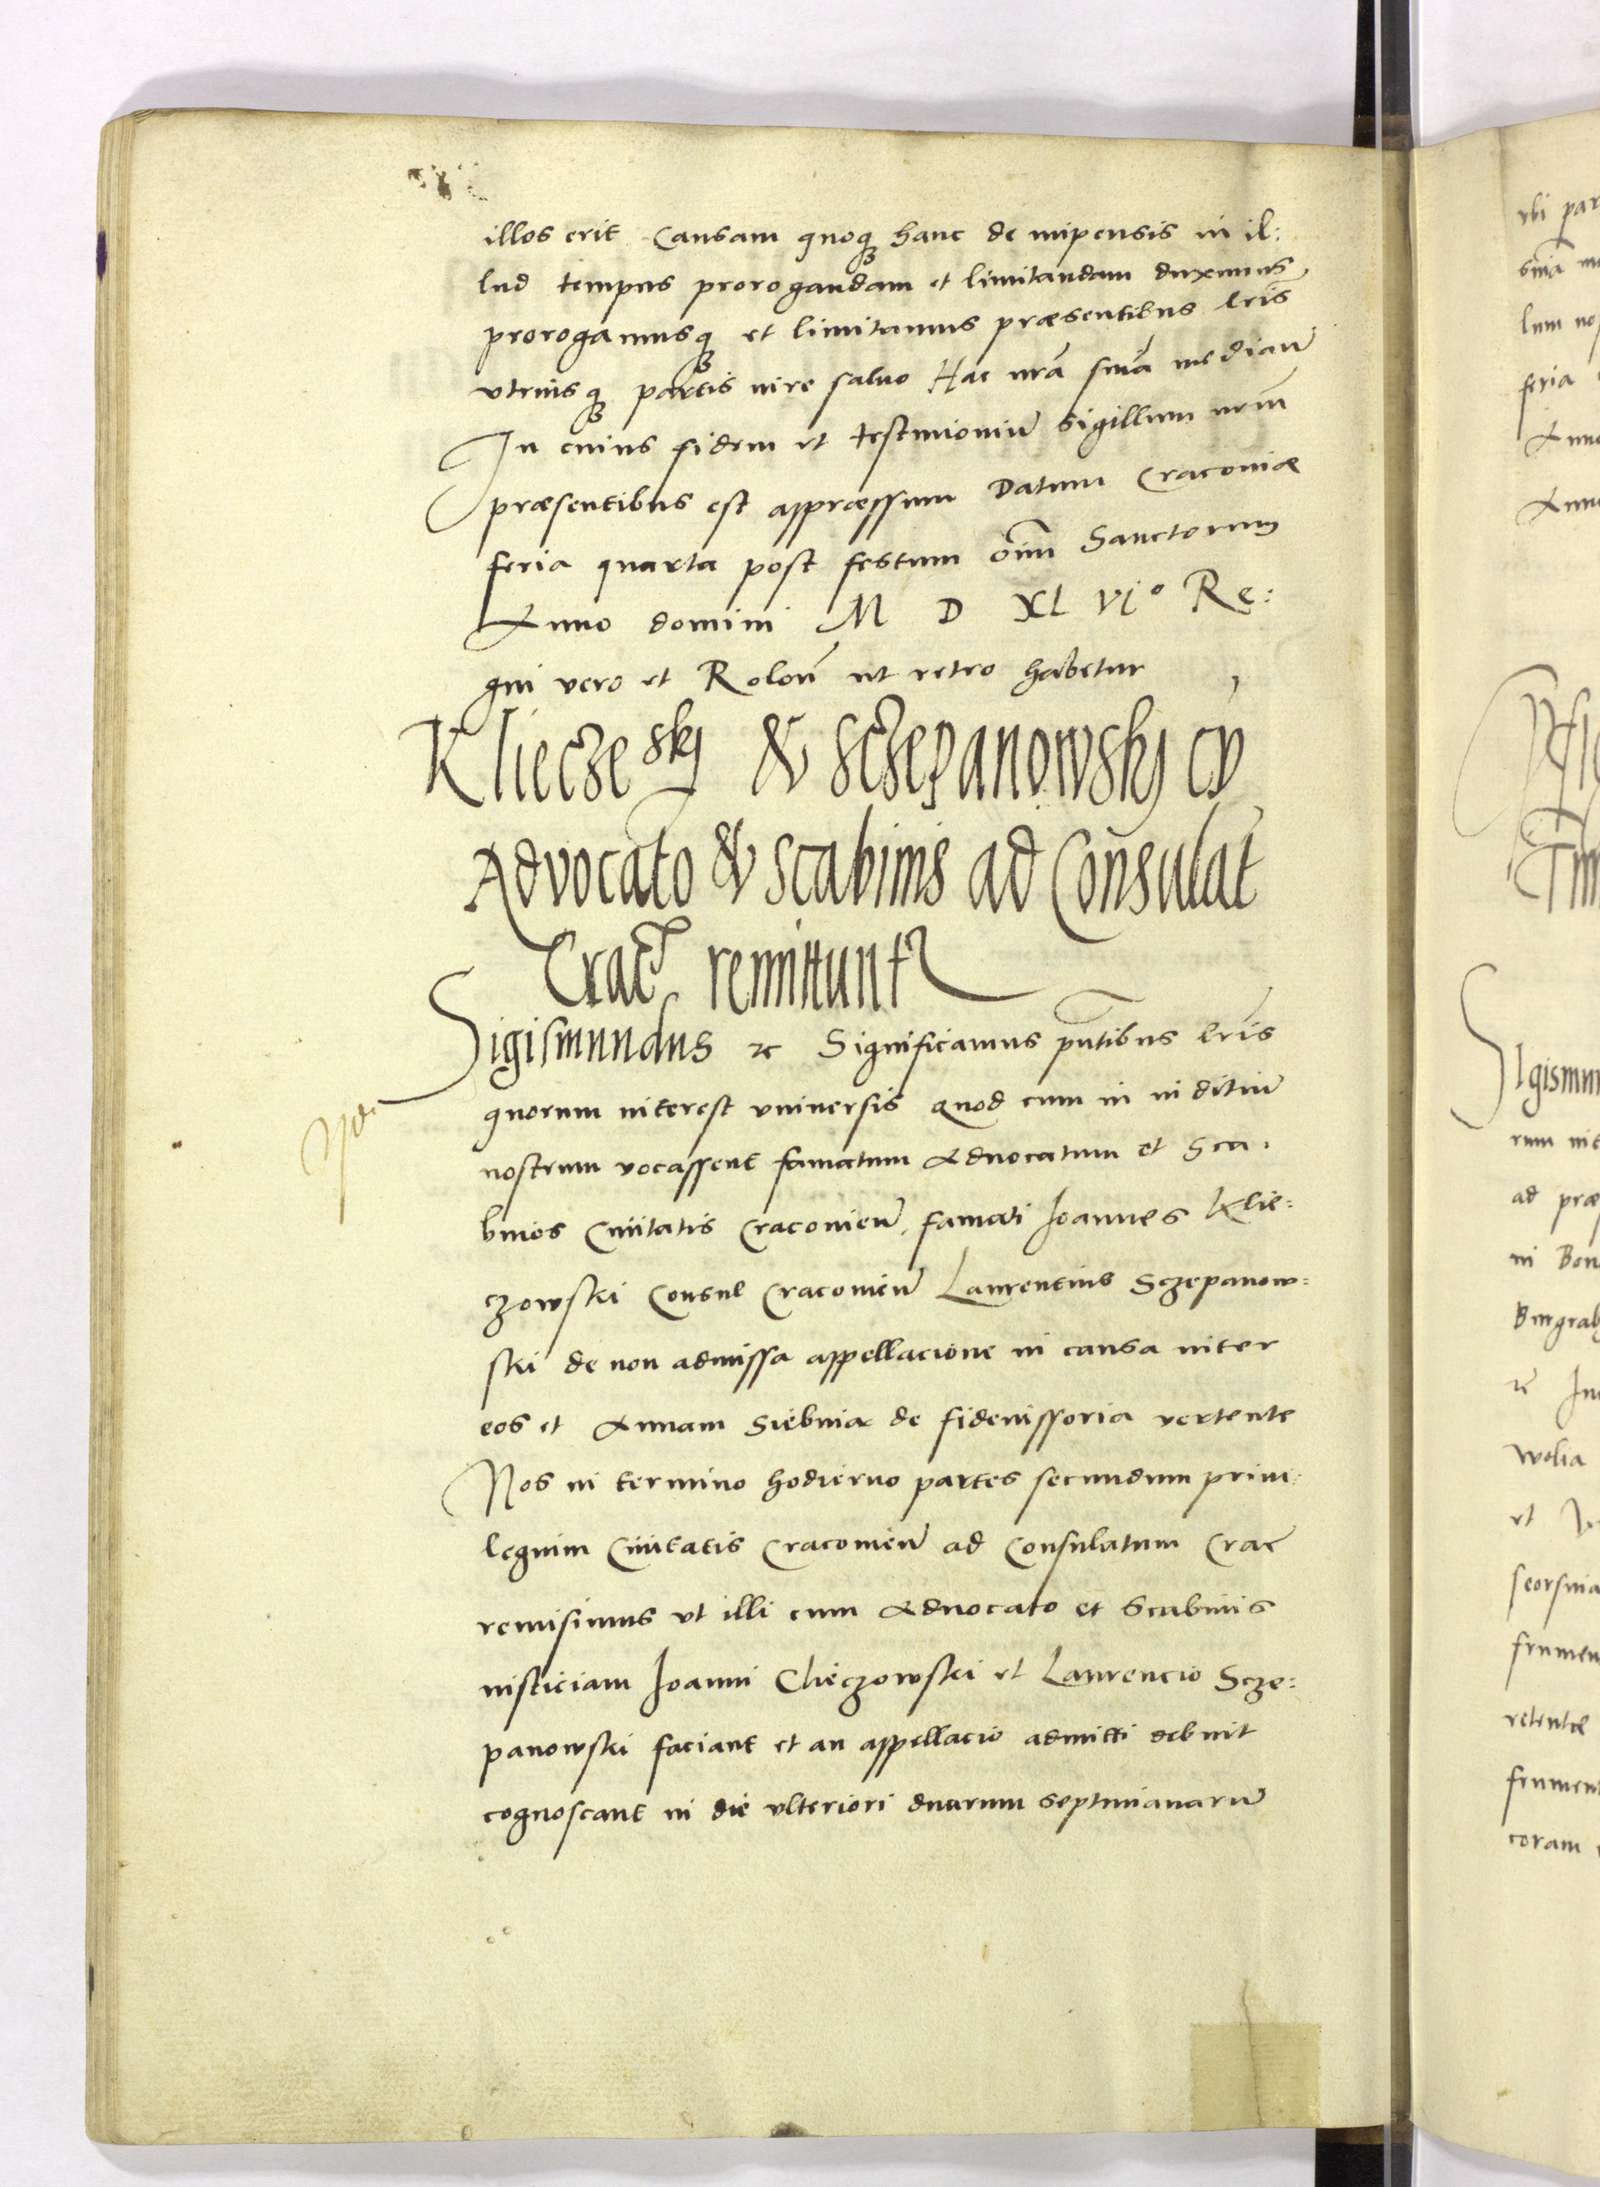 illos erit Causam quoq hanc de impensis in il:
lud tempus prorogandam et limitandam duximus
prorogamusq et limitamus præsentibus lris
vtriusq partis iure saluo Hac nrã sniã median̄
In cuius fidem et testimoniũ sigillum nrm̃
præsentibus est appræssum Datum Cracoviæ
feria quarta post festum oĩm Sanctorum
Anno domini M D XL VIº Re:
gni vero et Rolon̄ ut retro habetur
Klieczeskj & Sczepanowskj cũ
Advocato & scabinis ad Consulat̃
Crac̃ remittuntr
Sigismundus &c Significamus pn̄tibus lris
quorum interest vniuersis Quod cum in iuditiũ
nostrum vocassent famatum Aduocatum et Sca:
binos Ciuitatis Cracouien̄ famati Ioannes Klie:
czowski Consul Cracouien̄ Laurentius Sczepanow:
ski de non admissa appellacione in causa inter
eos et Annam Siebnia de fideiussoria vertente
Nos in termino hodierno partes secundum priui:
legium Ciuitatis Cracouien̄ ad Consulatum Crac̃
remisimus vt illi cum Aduocato et Scabinis
iusticiam Ioanni Clieczowski et Laurencio Scze:
panowski faciant et an appellacio admitti debuit
cognoscant in die vlteriori duarum septimanarũ